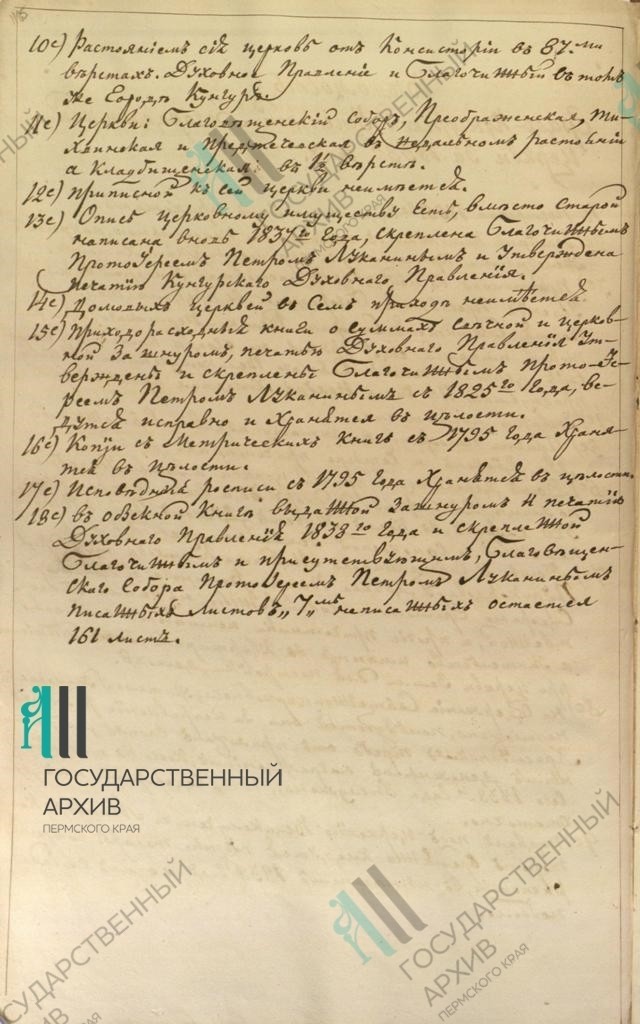 10е) Растояніемъ сія церковь отъ Консисторіи въ 87.ми
верстахъ. Духовное Правленіе и Благочинный въ томъ
же Городѣ Кунгурѣ.
11е) Церкви: Благовѣщенскій соборъ, Преображенская, Ти-
хвинская и Предтеческая въ недальномъ растояніи
а Кладбищенская въ 1½ верстѣ.
12е) приписной къ сей церкви неимѣется.
13е) Опись церковному имуществу Есть, вмѣсто старой
написана вновь 1837го Года, скреплена Благочиннымъ
Протоіереемъ Петромъ Луканинымъ и Утверждена
печатію Кунгурскаго Духовнаго Правленія.
14е) Домовыхъ церквей въ Семъ приходѣ неимѣется.
15е) Приходорасходныя книги о суммахъ свѣчной и церков-
ной За шнуромъ, печатью Духовнаго Правленія Ут-
верждены и скреплены Благочиннымъ Прото-Іе-
реемъ Петромъ Луканинымъ съ 1825го Года, ве-
дутся исправно и Хранятся въ цѣлости.
16е) Копіи съ Метрическихъ Книгъ съ 1795 года Хранят-
ся въ цѣлости.
17е) Исповѣдныя росписи съ 1795 Года Хранятся въ цѣлости.
18е) въ обыскной Книгѣ выданной За шнуромъ и печатію
Духовнаго Правленія 1838го Года и скрепленной
Благочиннымъ и присутствующимъ, Благовѣщен-
скаго Собора Протоіереемъ Петромъ Луканинымъ
писанныхъ листовъ „7„ мь написанныхъ остается
161 листъ.
ГОСУДАРСТВЕННЫЙ
АРХИВ
ПЕРМСКОГО КРАЯ
ГОСУДАРСТВЕННЫЙ
АРХИВ
ПЕРМСКОГО КРАЯ